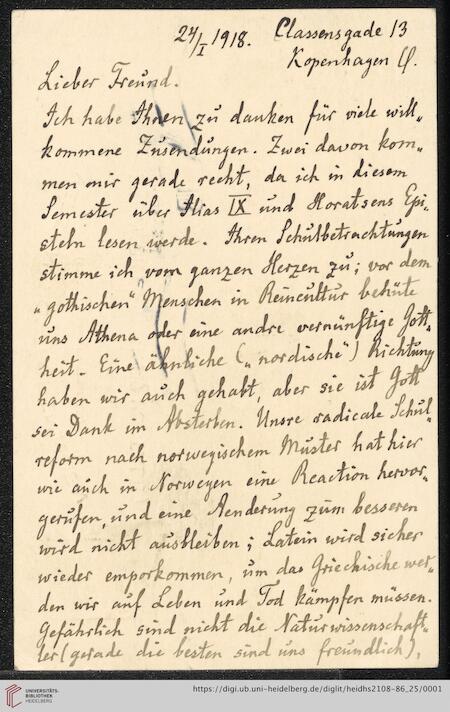 24/I 1918. Classensgade 13
Kopenhagen Ø.
Lieber Freund.
Ich habe Ihnen zu danken für viele will„
kommene Zusendungen. Zwei davon kom„
men mir gerade recht, da ich in diesem
Semester über Ilias IX und Horatsens Epi„
steln lesen werde. Ihren Schulbetrachtungen
stimme ich vom ganzen Herzen zu; vor dem
„gothischen" Menschen in Reincultur behüte
uns Athena oder eine andre vernünftige Gott„
heit. Eine ähnliche („nordische") Richtung
haben wir auch gehabt, aber sie ist Gott
sei Dank im Absterben. Unsre radicale Schul„
reform nach norwegischem Muster hat hier
wie auch in Norwegen eine Reaction hervor„
gerufen, und eine Aenderung zum besseren
wird nicht ausbleiben; Latein wird sicher
wieder emporkommen, um das Griechische wer„
den wir auf Leben und Tod kämpfen müssen.
Gefährlich sind nicht die Naturwissenschaft„
ler (gerade die besten sind uns freundlich),
UNIVERSITÄTS-
BIBLIOTHEK
HEIDELBERG
https://digi.ub.uni-heidelberg.de/diglit/heidhs2108-86_25/0001